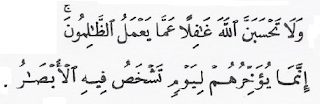 وَلَا تَحْسَبَنَّ اللَّهَ غَٰفِلًا عَمَّا يَعْمَلُ الظَّٰلِمُونَ ۚ
إِنَّمَا يُؤَخِّرُهُمْ لِيَوْمٍ تَشْخَصُ فِيهِ الْأَبْصَٰرُ .